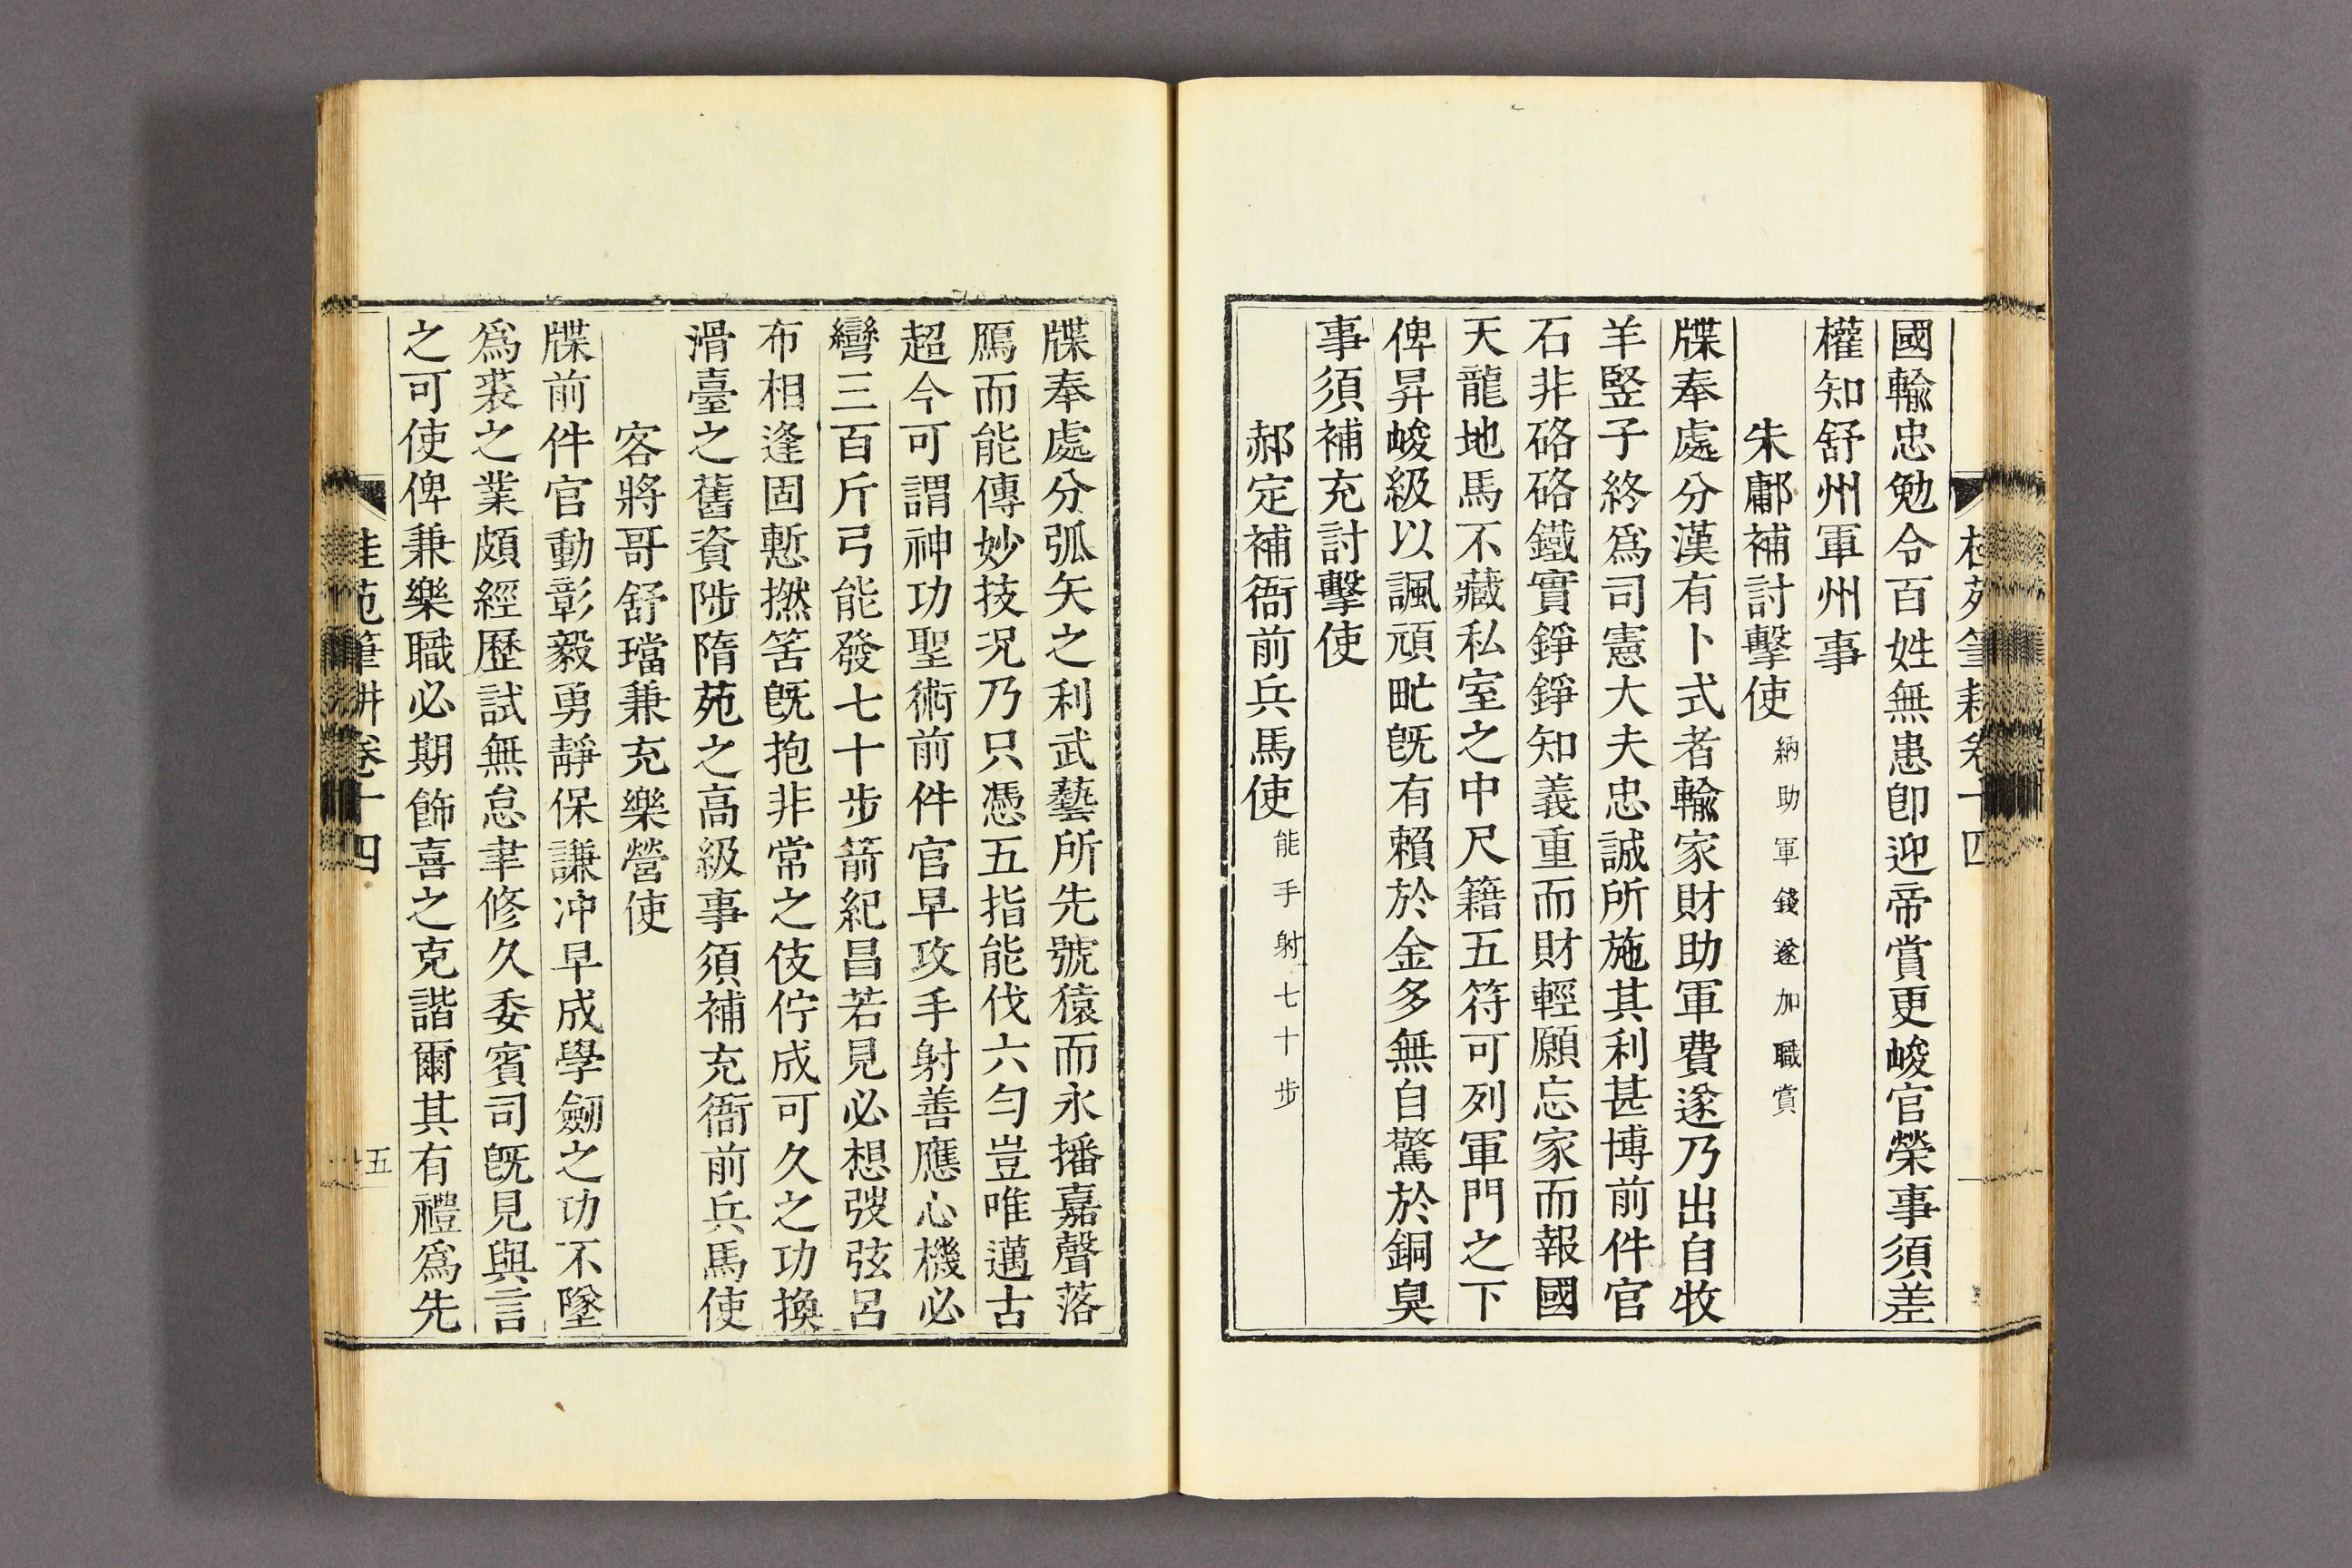 桂苑筆耕卷十四
國輸忠勉令百姓無患卽迎帝賞更峻官榮事須差
權知舒州軍州事
朱鄘補討擊使納助軍錢遂加職賞
牒奉處分漢有卜式者輸家財助軍費遂乃出自牧
羊豎子終爲司憲大夫忠誠所施其利甚博前件官
石非硌硌鐵實錚錚知義重而財輕願忘家而報國
天龍地馬不藏私室之中尺籍五符可列軍門之下
俾昇峻級以諷頑甿旣有賴於金多無自驚於銅臭
事須補充討擊使
郝定補衙前兵馬使能手射七十步
牒奉處分弧矢之利武藝所先號猿而永播嘉聲落
鴈而能傳妙技况乃只憑五指能伐六勻豈唯邁古
超今可謂神功聖術前件官早攻手射善應心機必
彎三百斤弓能發七十步箭紀昌若見必想弢弦呂
布相逢固慙撚筈旣抱非常之伎佇成可久之功換
滑臺之舊資陟隋苑之高級事須補充衙前兵馬使
客將哥舒璫兼充樂營使
牒前件官動彰毅勇靜保謙冲早成學劒之功不墜
爲裘之業頗經歷試無怠聿修久委賓司旣見與言
之可使俾兼樂職必期飾喜之克諧爾其有禮爲先
桂苑筆耕卷十四
五